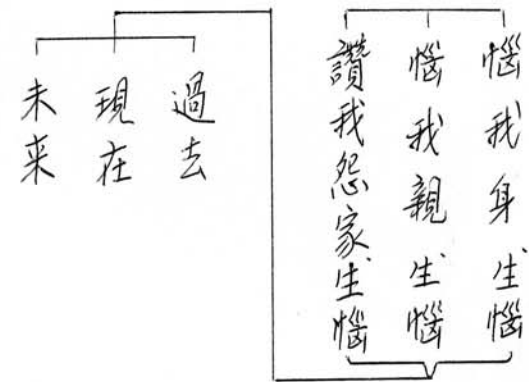 惱我身生惱
惱我親生惱
讚我怨家生惱
過去
現在
未来